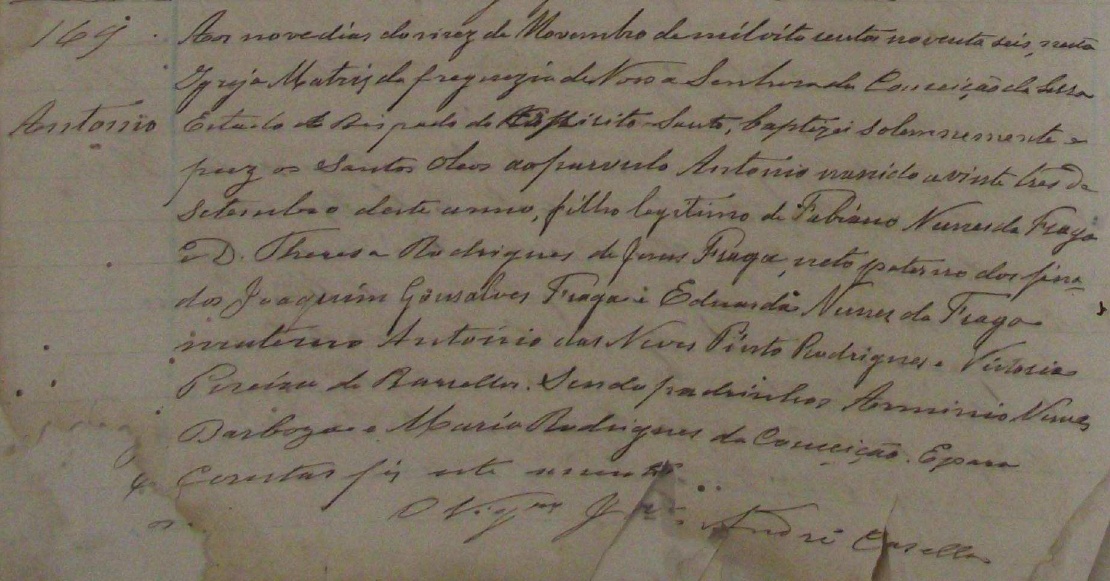 169
Antonio
Aos nove dias do mez de Novembro de mil oito centos noventa seis, nesta
Igreja Matriz da freguezia de Nossa Senhora da Conceição da Serra
Estado e Bispado do Espirito-Santo, baptizei solemnemente e
puz os Santos Oleos ao parvulo Antonio nascido a vinte tres de
Setembro deste anno, filho legitimo de Fabiano Nunes da Fraga
e D. Theresa Rodrigues de Jesus Fraga, neto paterno dos fina
dos Joaquim Gonsalves Fraga e Eduarda Nunes da Fraga
materno Antonio das Neves Pinto Rodrigues e Victoria
Pereira de Barcellos. Sendo padrinhos Arminio Nunes
Barboza e Maria Rodrigues da Conceição. E para
constar fiz este assento
O Vigro José André Casella